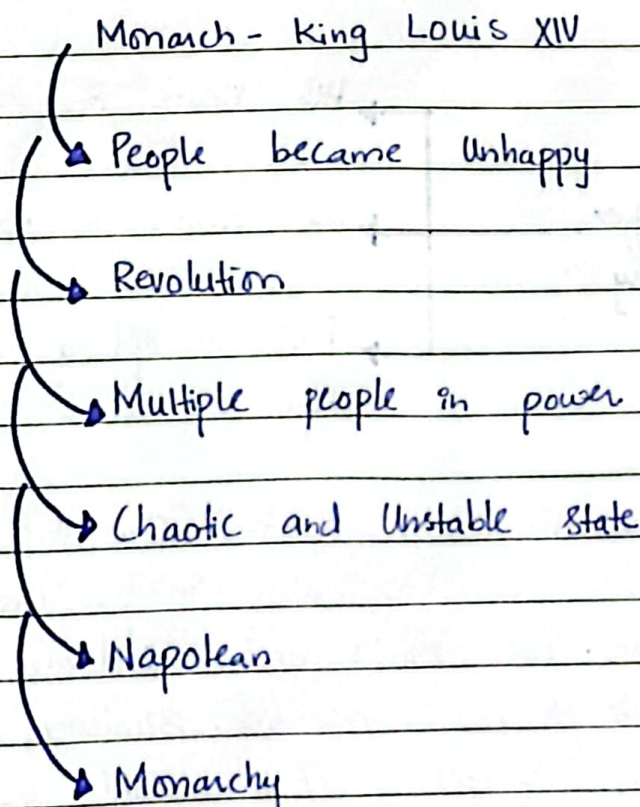 Monarch - King Louis XIV
People became Unhappy
Revolution
Multiple people in power
Chaotic and Unstable state
Napolean
Monarchy